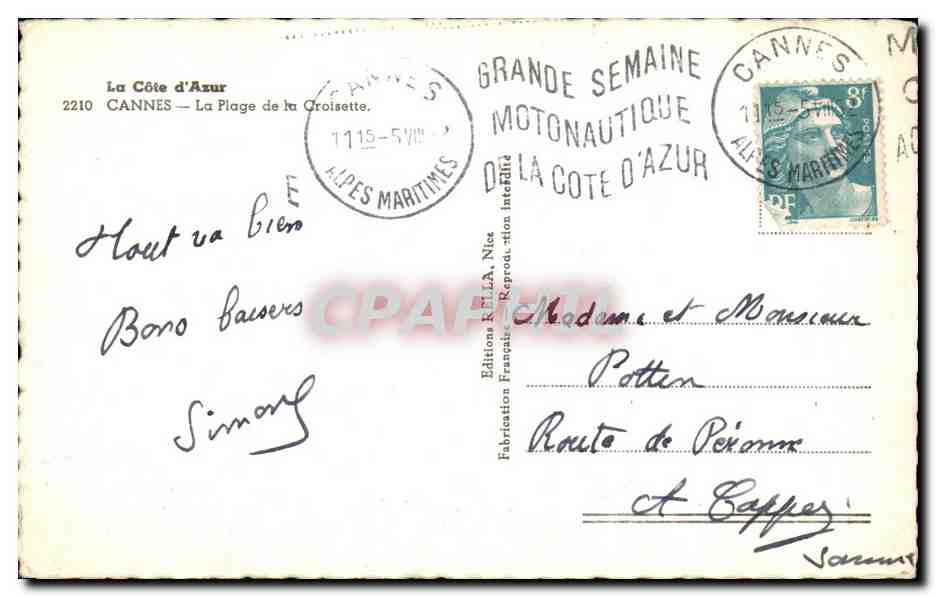 La Côte d'Azur
2210 CANNES — La Plage de la Croisette.
CANNES
11 15 - 5 VIII
ALPES MARITIMES
GRANDE SEMAINE
MOTONAUTIQUE
DE LA COTE D'AZUR
CANNES
11 15 - 5 VIII
ALPES MARITIMES
8F
POSTES
RF
Tout va bien
Bons baisers
Simone
Editions RELLA, Nice
Fabrication Française - Reproduction interdite
CPAPHIL
Madame et Monsieur
Potten
Route de Péronne
A Cappy
Somme